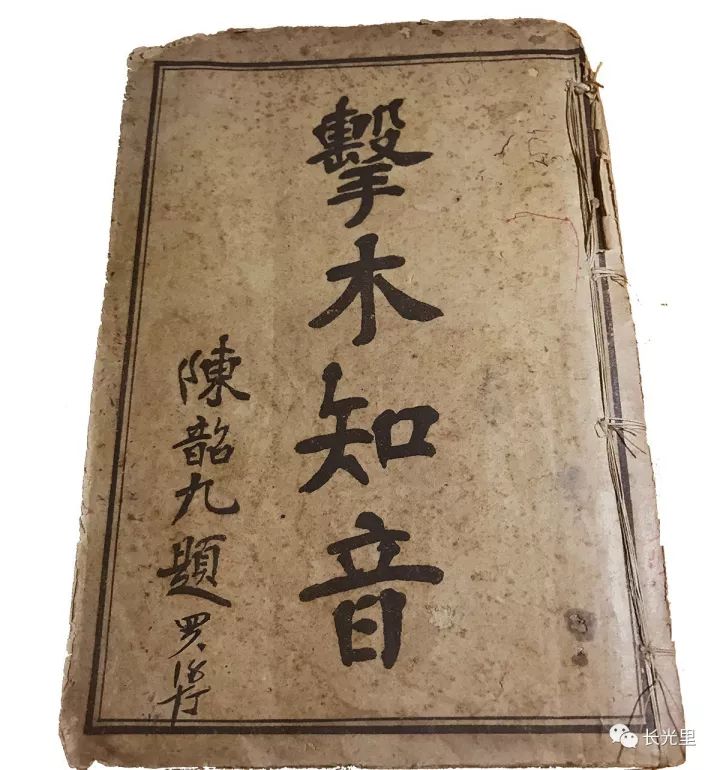 擊木知音
陳韶九題
长光里